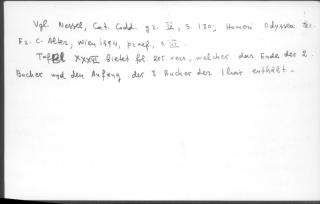 Vgl. Nessel, Cat. Codd. gr. IV, S. 130, Homeri Odyssea Ec.
Fr. C. Alter, Wien 1794, praef., S. III.
Tafel XXXII bietet fol. 205 vers., welcher das Ende des 2.
Buches und den Anfang des 3 Buches der Iliat enthält.